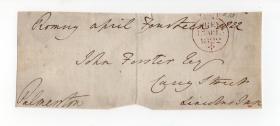 Romsey April Fourteen 1832
John Forster Esq
Carey Street
Lincolns Inn
Palmerston